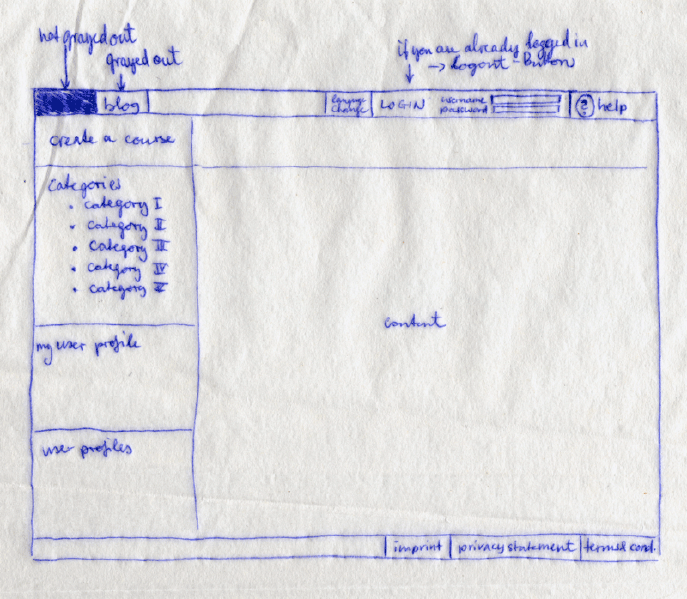 not grayed out
grayed out
if you are already logged in
-> Logout-Button
blog
language
change
LOGIN
username
password
? help
create a course
Categories
• category I
• category II
• category III
• category IV
• category V
content
my user profile
user profiles
imprint
privacy statement
terms & cond.